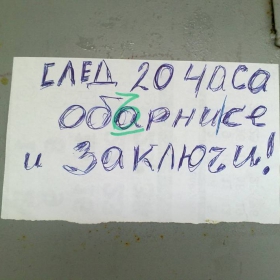 СЛЕД 20 ЧАСА
обарнисе
и ЗАКЛЮЧИ!